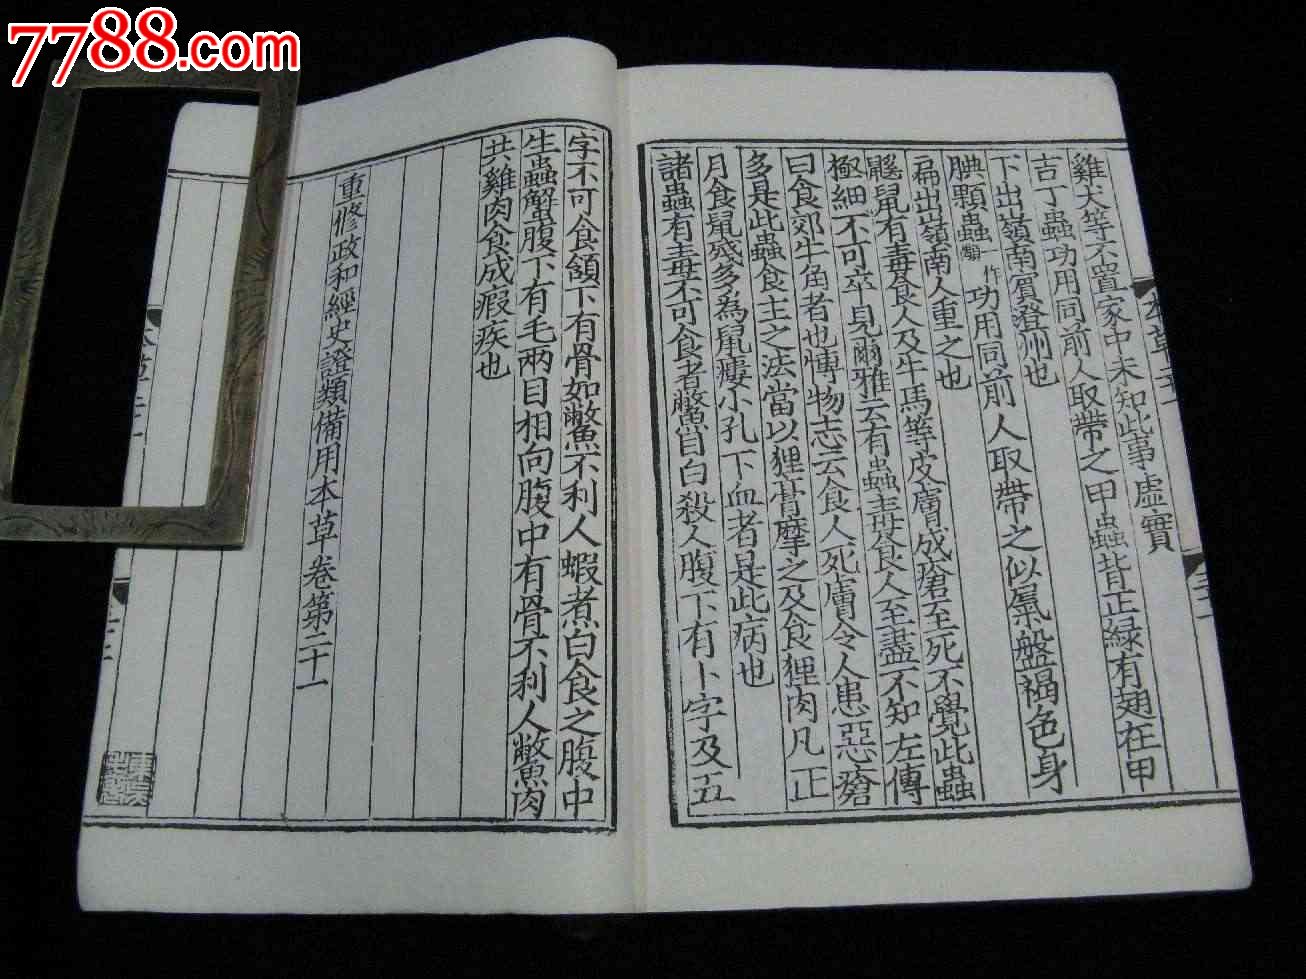 7788.com
雞犬等不置家中未知此事虛實
吉丁蟲功用同前人取帶之甲蟲背正緑有翅在甲
下出嶺南賓澄州也
腆顆蟲一作顆功用同前人取帶之似㲴盤褐色身
扁出嶺南人重之也
鼷鼠有毒食人及牛馬等皮膚成瘡至死不覺此蟲
極細不可卒見爾雅云有蟲毒食人至盡不知左傳
曰食郊牛角者也博物志云食人死膚令人患惡瘡
多是此蟲食主之法當以狸膏摩之及食狸肉凡正
月食鼠殘多為鼠瘻小孔下血者是此病也
諸蟲有毒不可食者鱉目白殺人腹下有卜字及五
字不可食頷下有骨如鱉不利人蝦煮白食之腹中
生蟲蟹腹下有毛兩目相向腹中有骨不利人鱉肉
共雞肉食成瘕疾也
重修政和經史證類備用本草卷第二十一